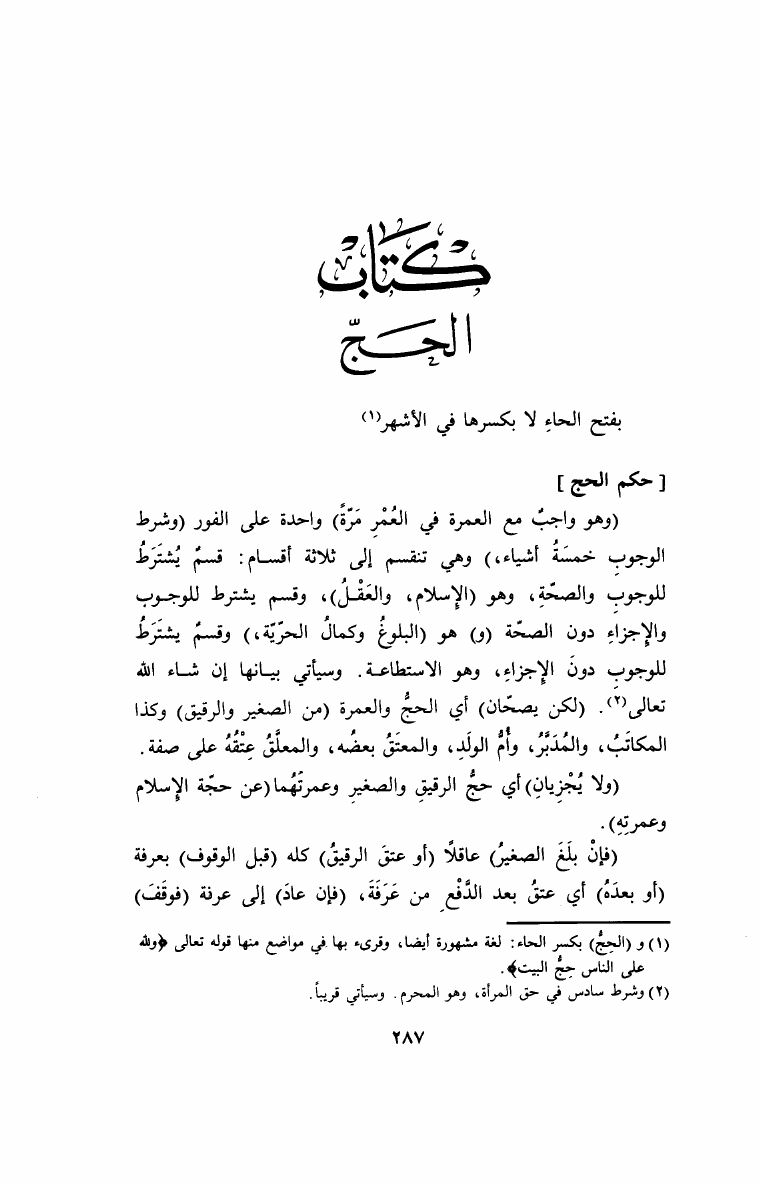 كتاب
الحجّ
بفتح الحاءِ لا بكسرها في الأشهر(١)
[ حكم الحج ]
(وهو واجبٌ مع العمرة في العُمْرِ مَرّةً) واحدة على الفور (وشرط
الوجوبِ خمسَةُ أشياء،) وهي تنقسم إلى ثلاثة أقسام: قسمٌ يُشتَرَطُ
للوجوبِ والصحّةِ، وهو (الإسلام، والعَقْلُ)، وقسم يشترط للوجوب
والإجزاءِ دون الصحّة (و) هو (البلوغُ وكمالُ الحرّيّة،) وقسمٌ يشتَرَطُ
للوجوبِ دونَ الإجزاءِ، وهو الاستطاعة. وسيأتي بيانها إن شاء الله
تعالى(٢). (لكن يصحّان) أي الحجُّ والعمرة (من الصغير والرقيق) وكذا
المكاتَبُ، والمُدَبَّرُ، وأُمُّ الولَدِ، والمعتَقُ بعضُه، والمعلَّقُ عِتْقُهُ على صفة.
(ولا يُجْزِيانِ) أي حجُّ الرقيقِ والصغيرِ وعمرتَهُما (عن حجّة الإسلام
وعمرتِهِ).
(فإنْ بلَغَ الصغيرُ) عاقلًا (أو عتقَ الرقيقُ) كله (قبل الوقوف) بعرفة
(أو بعدَهُ) أي عتقُ بعد الدَّفْعِ من عَرَفَةَ، (فإن عادَ) إلى عرفة (فوقَفَ)
(١) و (الحِجُّ) بكسر الحاء: لغة مشهورة أيضا، وقرىء بها في مواضع منها قوله تعالى ﴿ولله
على الناس حِجُّ البيت﴾.
(٢) وشرط سادس في حق المرأة، وهو المحرم. وسيأتي قريباً.
٢٨٧